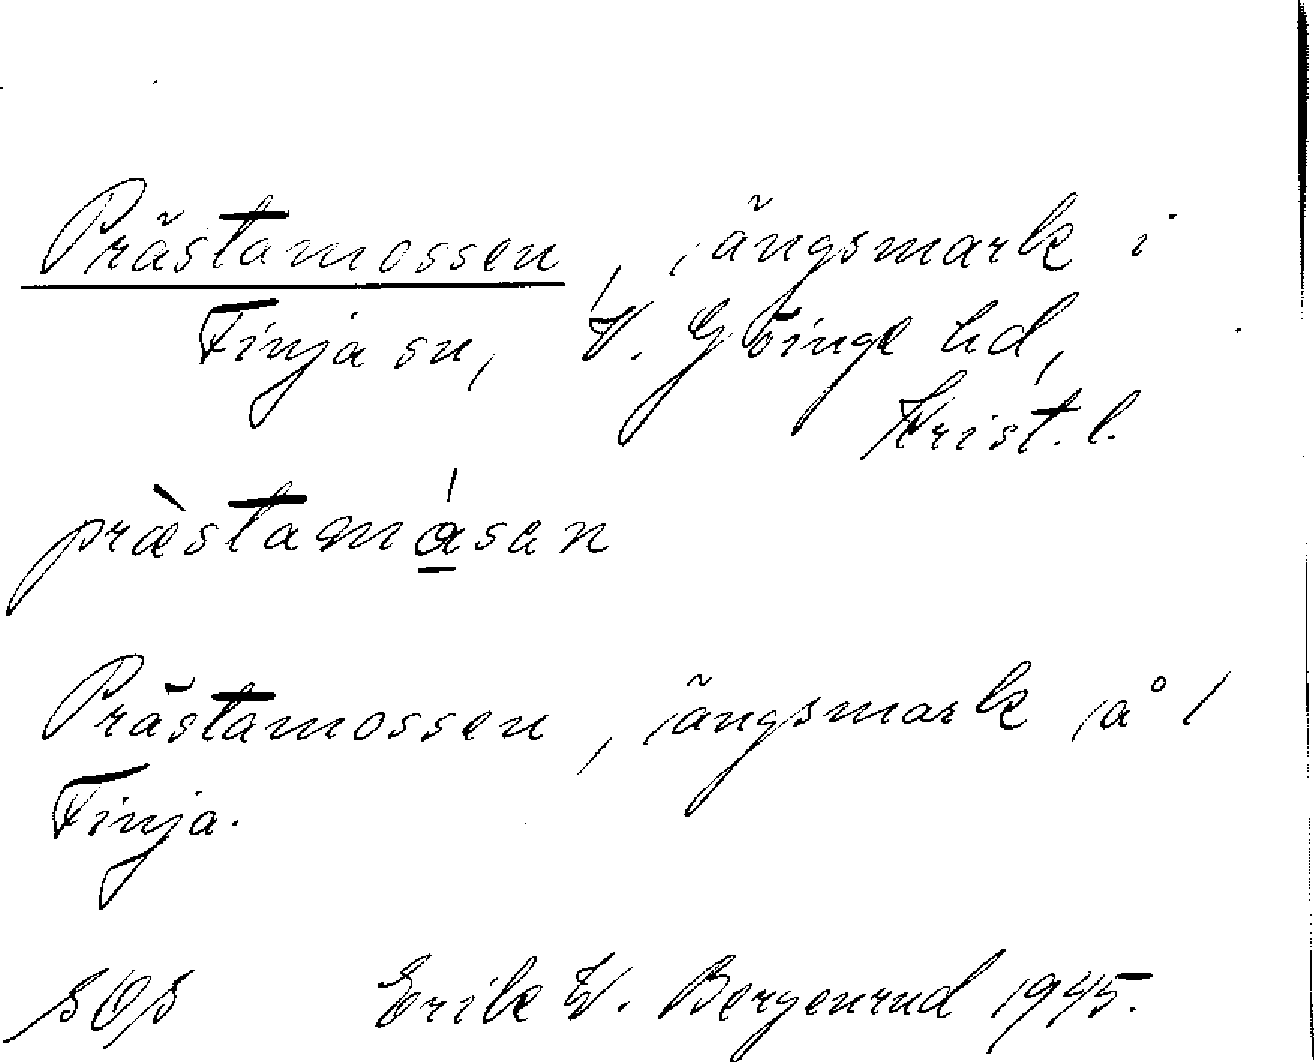 Prästamossen, ängsmark i
Finja sn, V. Göinge hd,
Krist. l.
præ̀stamá̱san
Prästamossen, ängsmark å 1
Finja.
SOS Erik W. Bergenrud 1945.